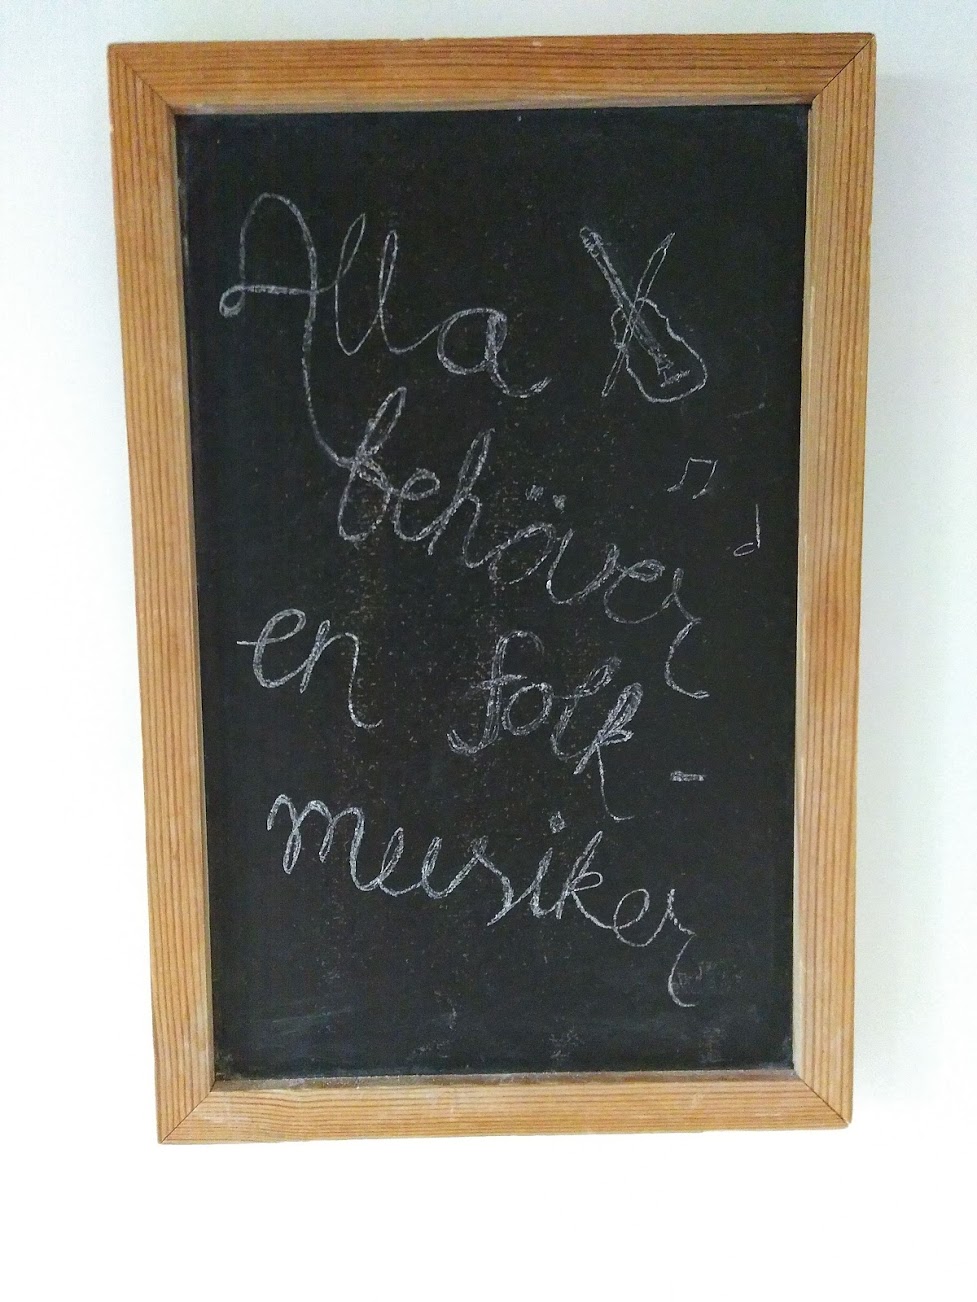 Alla
behöver
en folk-
musiker